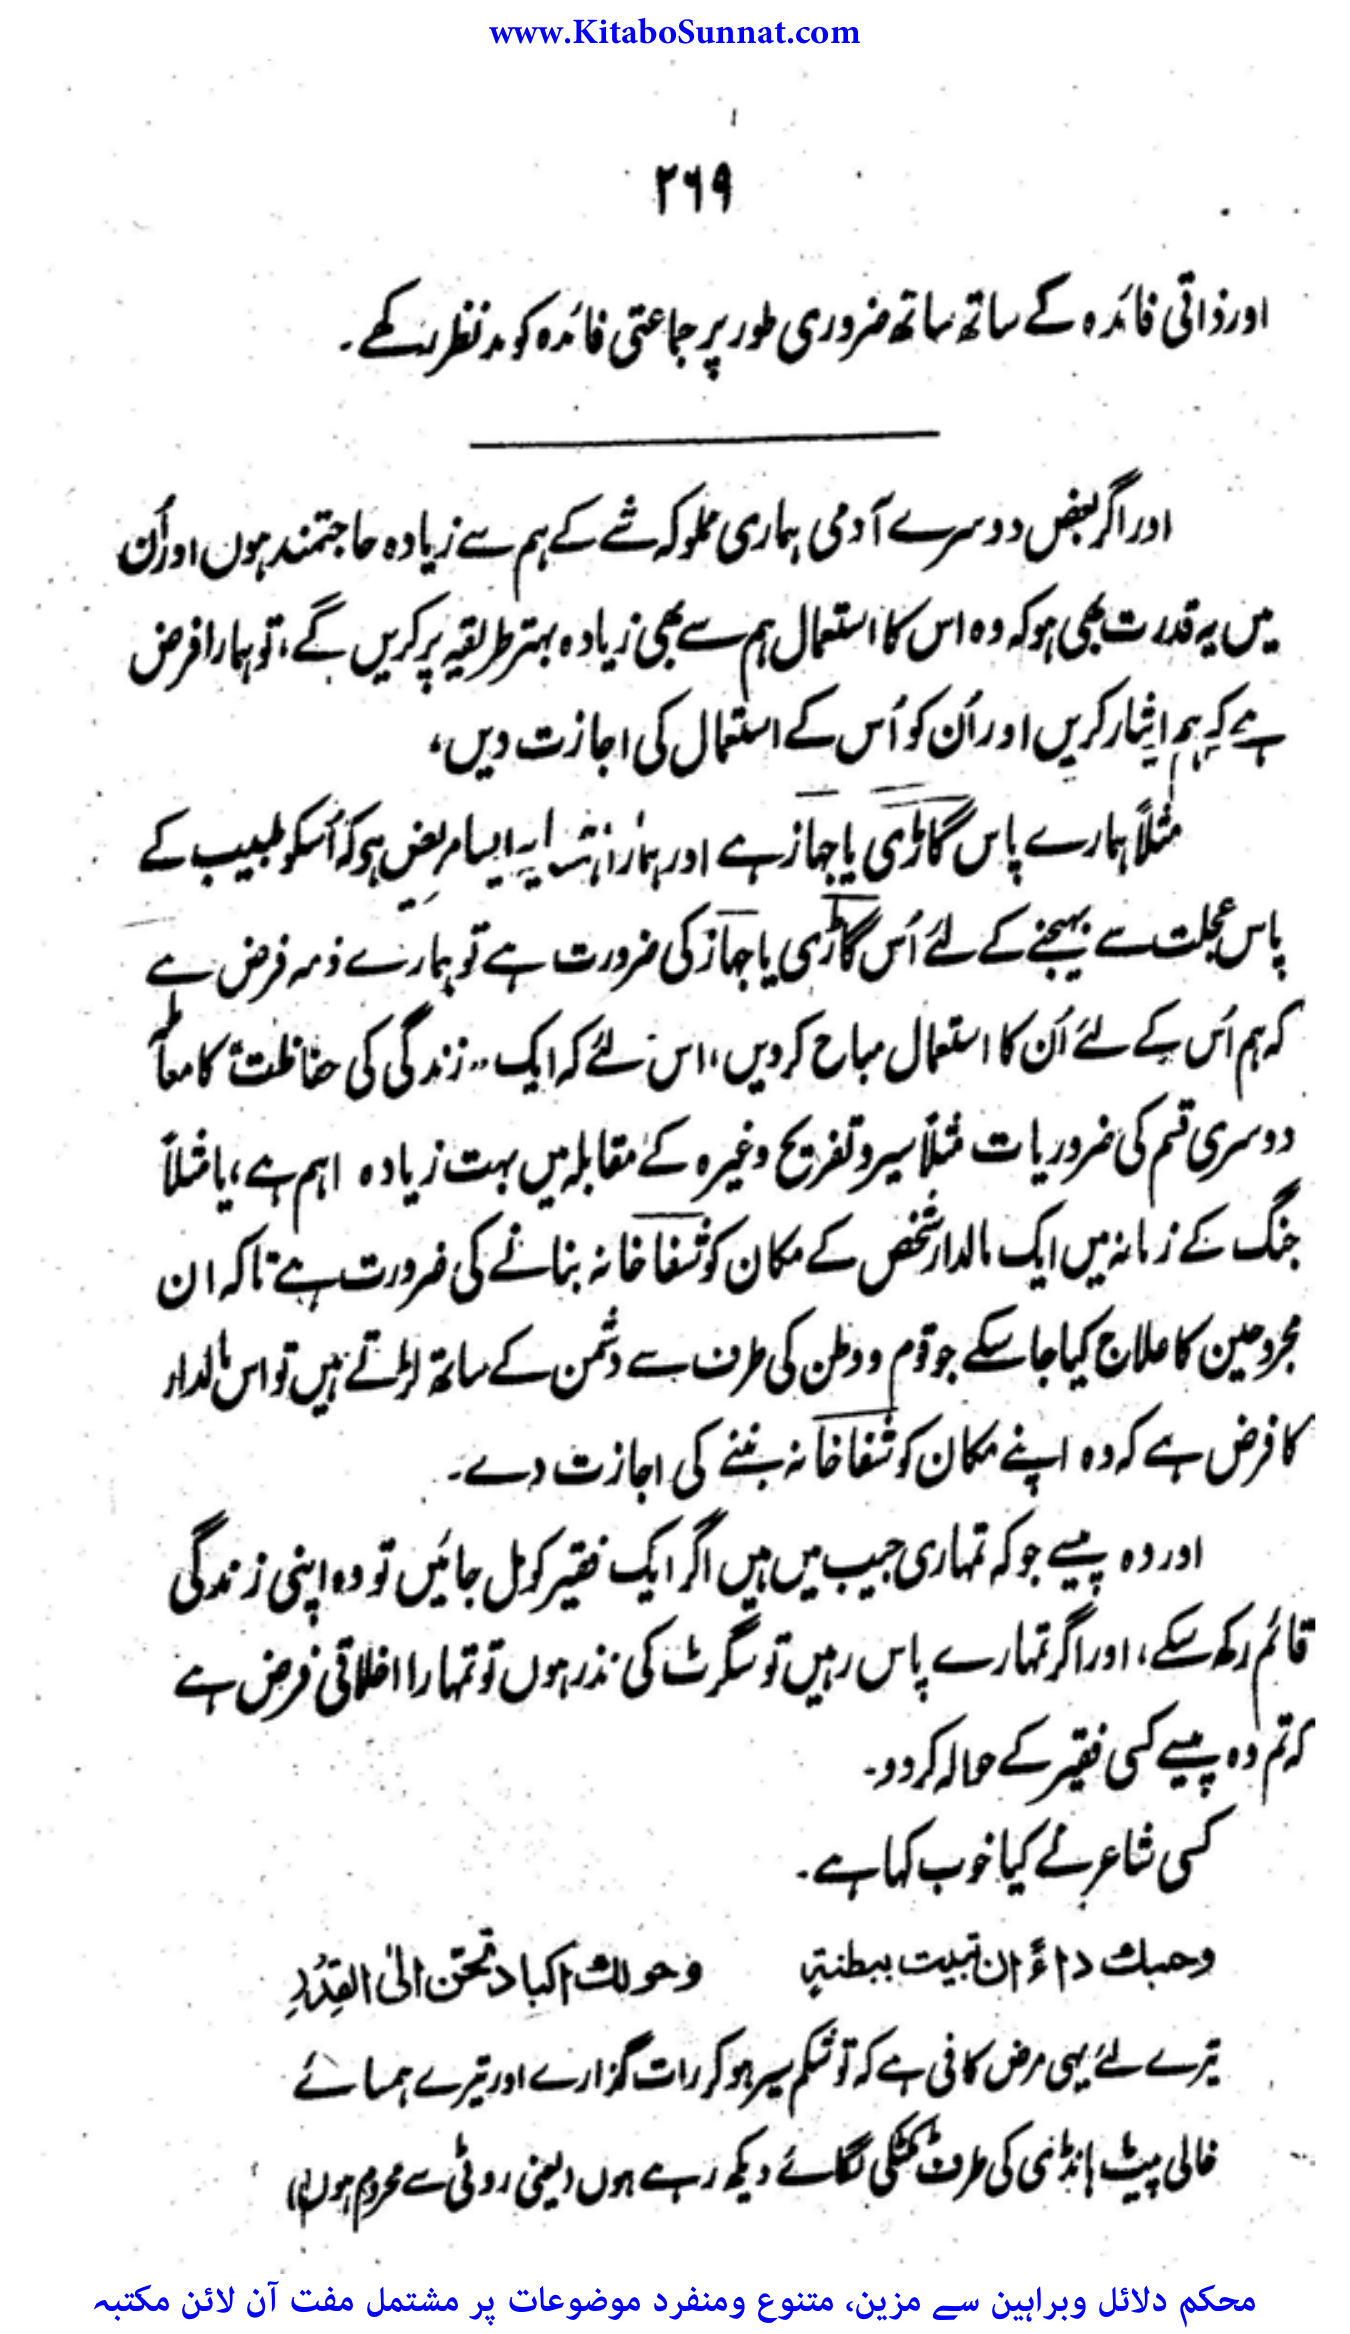 www.KitaboSunnat.com
۲۶۹
اور ذاتی فائدہ کے ساتھ ساتھ ضروری طور پر جماعتی فائدہ کو مدنظر رکھے۔
اور اگر بعض دوسرے آدمی ہماری مملوکہ شے کے ہم سے زیادہ حاجتمند ہوں اور اُن
میں یہ قدرت بھی ہو کہ وہ اس کا استعمال ہم سے بھی زیادہ بہتر طریقہ پر کریں گے، تو ہمارا فرض
ہے کہ ہم ایثار کریں اور اُن کو اُس کے استعمال کی اجازت دیں،
مثلاً ہمارے پاس گاڑی یا جہاز ہے اور ہمارا ایسا مریض ہو کہ اُسکو طبیب کے
پاس عجلت سے پہنچنے کے لئے اُس گاڑی یا جہاز کی ضرورت ہے تو ہمارے ذمہ فرض ہے
کہ ہم اُس کے لئے اُن کا استعمال مباح کر دیں، اس لئے کہ ایک "زندگی کی حفاظت" کا معاملہ
دوسری قسم کی ضروریات مثلاً سیر و تفریح وغیرہ کے مقابلہ میں بہت زیادہ اہم ہے، یا مثلاً
جنگ کے زمانہ میں ایک مالدار شخص کے مکان کو شفاخانہ بنانے کی ضرورت ہے تاکہ ان
مجروحین کا علاج کیا جا سکے جو قوم و وطن کی طرف سے دشمن کے ساتھ لڑتے ہیں تو اس مالدار
کا فرض ہے کہ وہ اپنے مکان کو شفاخانہ بننے کی اجازت دے۔
اور وہ پیسے جو کہ تمہاری جیب میں ہیں اگر ایک فقیر کو مل جائیں تو وہ اپنی زندگی
قائم رکھ سکے، اور اگر تمہارے پاس رہیں تو سگرٹ کی نذر ہوں تو تمہارا اخلاقی فرض ہے
کہ تم وہ پیسے کسی فقیر کے حوالہ کر دو۔
کسی شاعر نے کیا خوب کہا ہے۔
وحسبك داءً ان تبيت ببطنةٍ وحولك اكباد تحنّ الى القِدْرِ
تیرے لئے یہی مرض کافی ہے کہ تو شکم سیر ہو کر رات گزارے اور تیرے ہمسائے
خالی پیٹ ہانڈی کی طرف ٹکٹکی لگائے دیکھ رہے ہوں (یعنی روٹی سے محروم ہوں)
محکم دلائل وبراہین سے مزین، متنوع ومنفرد موضوعات پر مشتمل مفت آن لائن مکتبہ